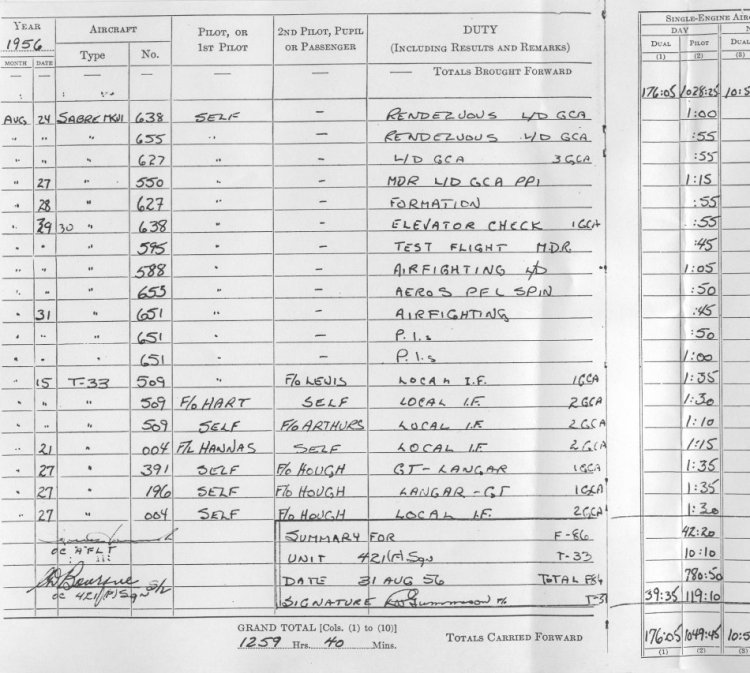 YEAR AIRCRAFT PILOT, OR 1ST PILOT 2ND PILOT, PUPIL OR PASSENGER DUTY (INCLUDING RESULTS AND REMARKS) SINGLE-ENGINE AIRC
1956 DAY
MONTH DATE Type No. DUAL PILOT DUAL
(1) (2) (3)
— — — — — — TOTALS BROUGHT FORWARD
176:05 1028:25 10:5
AUG 24 SABRE MKVI 638 SELF — RENDEZVOUS L/D GCA 1:00
" " " 655 " — RENDEZVOUS L/D GCA :55
" " " 627 " — L/D GCA 3 GCA :55
" 27 " 550 " — MDR L/D GCA PPI 1:15
" 28 " 627 " — FORMATION :55
" 29 30 " 638 " — ELEVATOR CHECK 1GCA :55
" " " 595 " — TEST FLIGHT MDR :45
" " " 588 " — AIRFIGHTING L/D 1:05
" " " 653 " — AEROS PFL SPIN :50
" 31 " 651 " — AIRFIGHTING :45
" " " 651 " — P.I.s :50
" " " 651 " — P.I.s 1:00
" 15 T-33 509 " F/O LEWIS LOCAL I.F. 1GCA 1:35
" " " 509 F/O HART SELF LOCAL I.F. 2 GCA 1:30
" " " 509 SELF F/O ARTHURS LOCAL I.F. 2 GCA 1:10
" 21 " 004 F/L HANNAS SELF LOCAL I.F. 2 GCA 1:15
" 27 " 391 SELF F/O HOUGH GT - LANGAR 1GCA 1:35
" 27 " 196 SELF F/O HOUGH LANGAR - GT 1GCA 1:35
" 27 " 004 SELF F/O HOUGH LOCAL I.F. 2GCA 1:30
SUMMARY FOR F-86 42:20
OC A FLT UNIT 421(F) Sqn T-33 10:10
Bourque S/L DATE 31 AUG 56 TOTAL F86 780:50
OC 421(F) Sqn SIGNATURE F/O T-3 39:35 119:10
GRAND TOTAL [Cols. (1) to (10)]
1259 Hrs. 40 Mins. TOTALS CARRIED FORWARD 176:05 1049:45 10:5
(1) (2) (3)